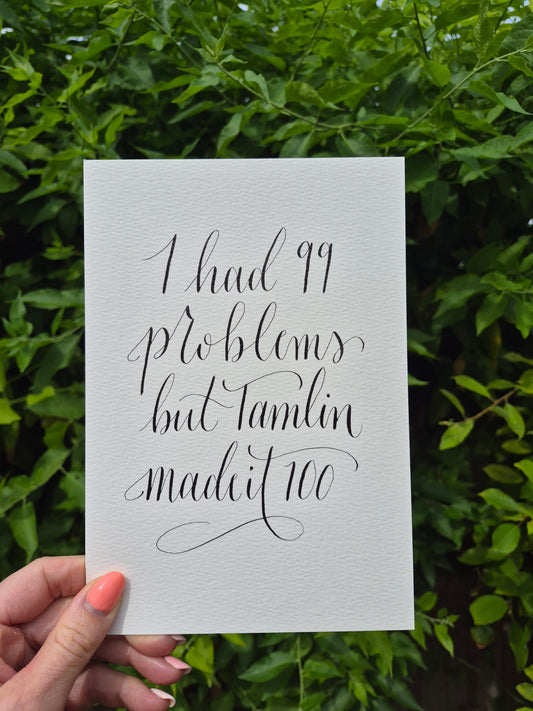 I had 99
problems
but Tamlin
made it 100